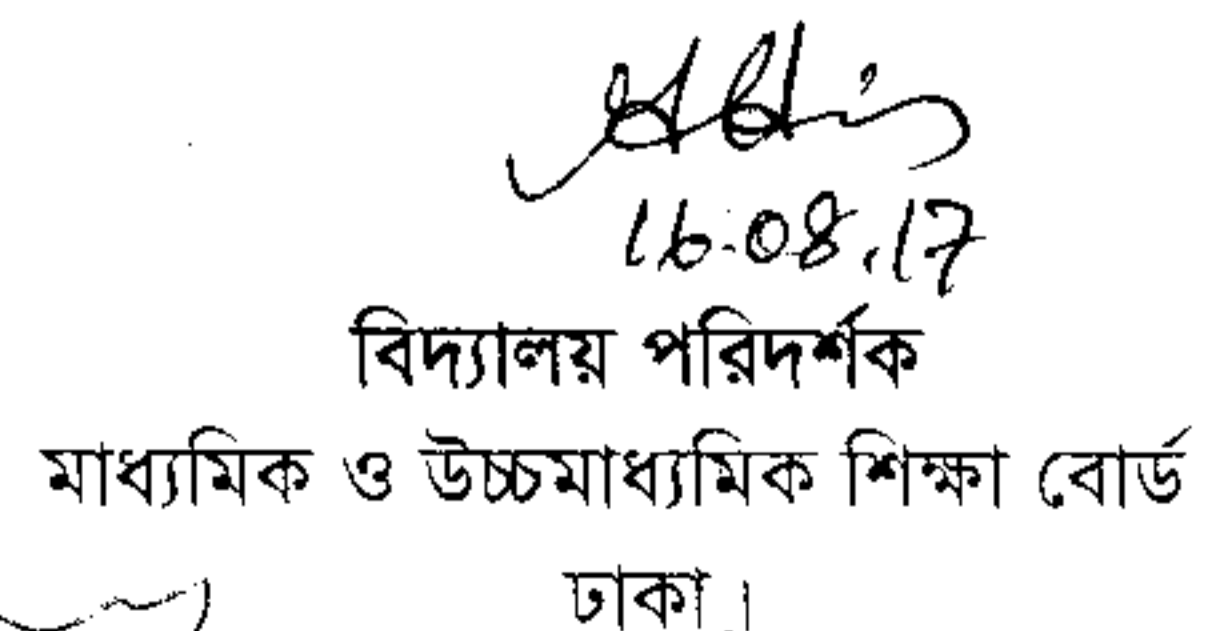 16.08.17
বিদ্যালয় পরিদর্শক
মাধ্যমিক ও উচ্চমাধ্যমিক শিক্ষা বোর্ড
ঢাকা।